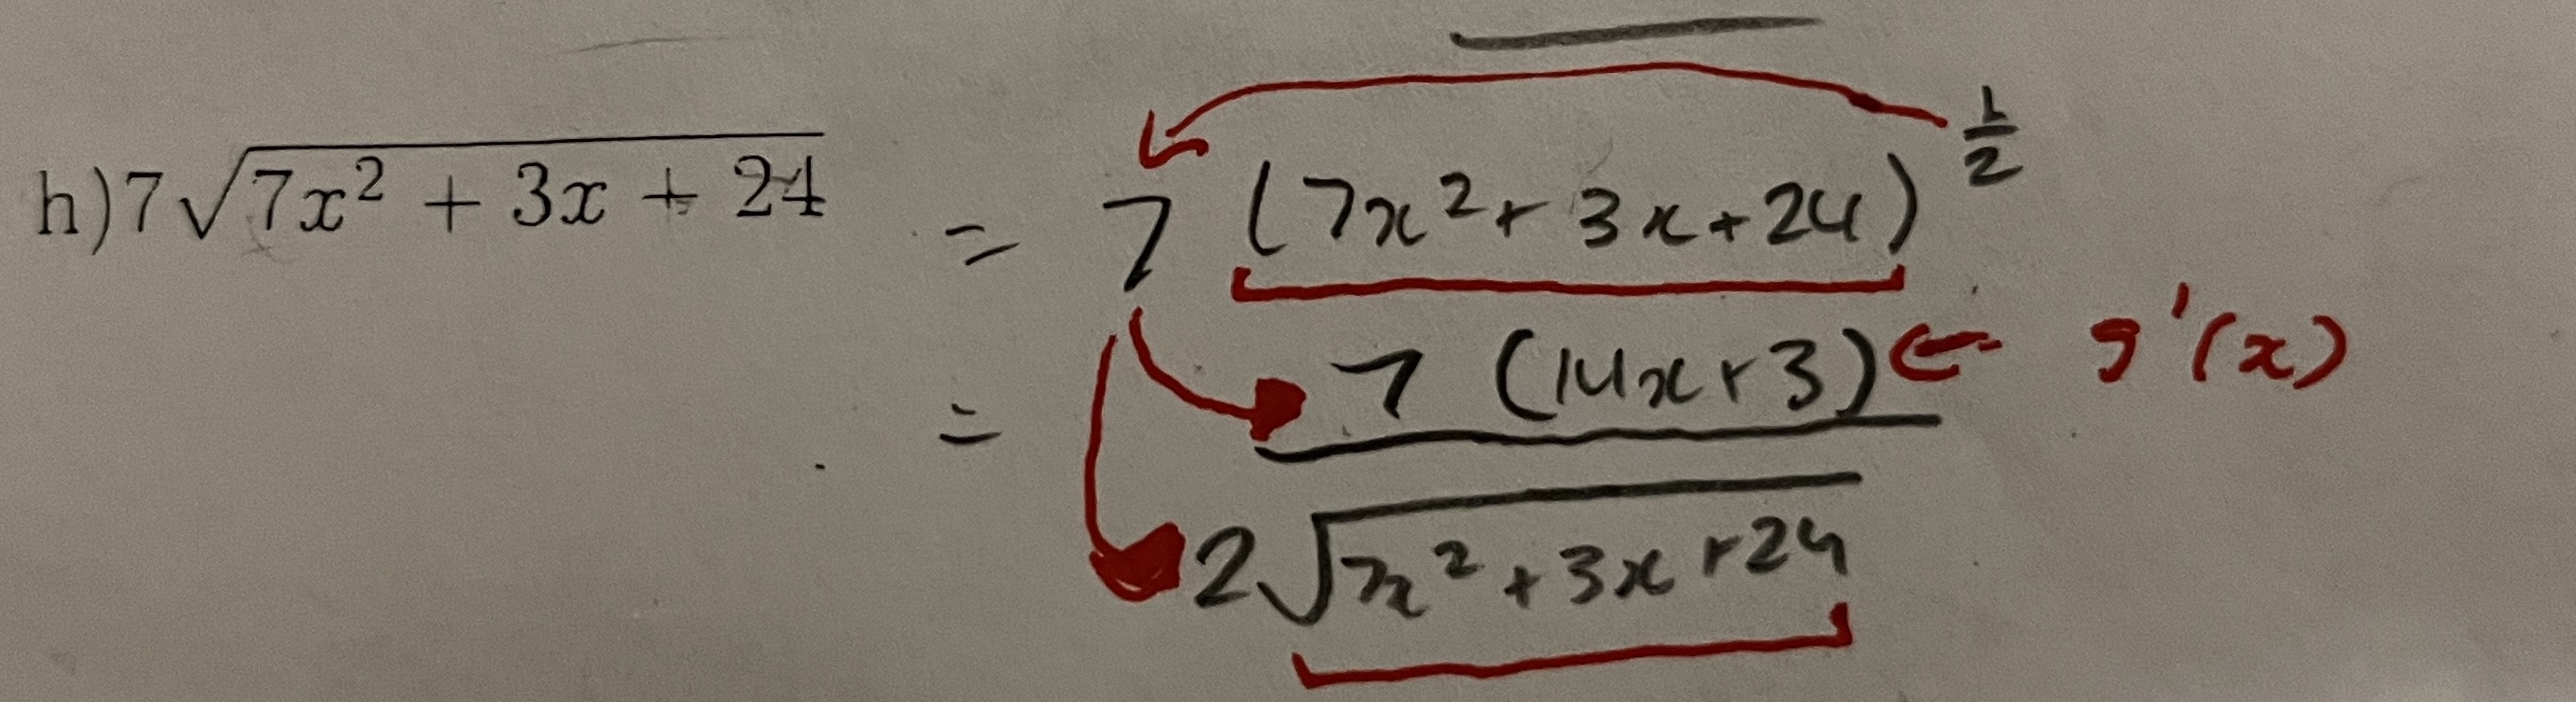 h) 7√(7x² + 3x + 24) = 7 (7x² + 3x + 24)^(1/2)
= 7 (14x + 3) ← g'(x)
2√(7x² + 3x + 24)